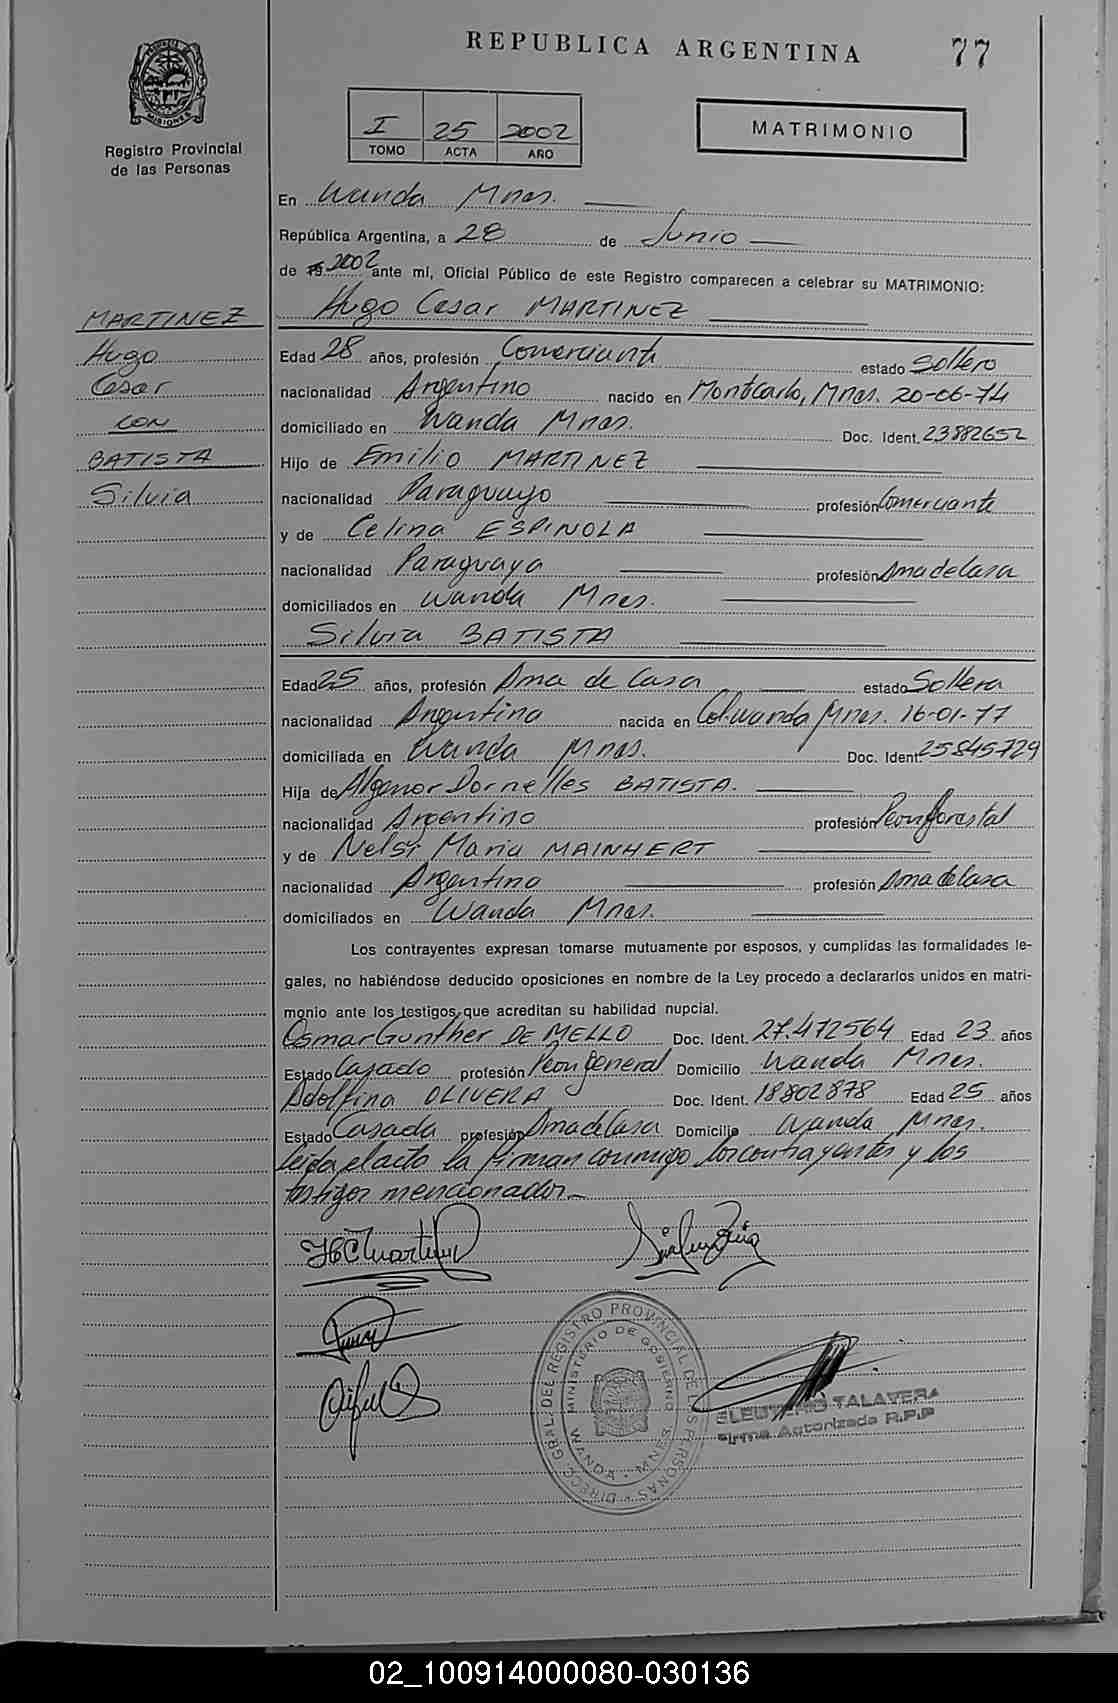 REPUBLICA ARGENTINA
77
PROVINCIA DE MISIONES
Registro Provincial
de las Personas
I 25 2002
TOMO ACTA AÑO
MATRIMONIO
En Wanda Mnes.
República Argentina, a 28 de Junio
de 19 2002 ante mí, Oficial Público de este Registro comparecen a celebrar su MATRIMONIO:
Hugo Cesar MARTINEZ
MARTINEZ
Hugo
Cesar
CON
BATISTA
Silvia
Edad 28 años, profesión Comerciante estado Soltero
nacionalidad Argentino nacido en Montecarlo, Mnes. 20-06-74
domiciliado en Wanda Mnes. Doc. Ident. 23882652
Hijo de Emilio MARTINEZ
nacionalidad Paraguayo profesión Comerciante
y de Celina ESPINOLA
nacionalidad Paraguaya profesión Ama de Casa
domiciliados en Wanda Mnes.
Silvia BATISTA
Edad 25 años, profesión Ama de Casa estado Soltera
nacionalidad Argentina nacida en Col. Wanda Mnes. 16-01-77
domiciliada en Wanda Mnes. Doc. Ident. 25845729
Hija de Algenor Dornelles BATISTA.
nacionalidad Argentino profesión Peon forestal
y de Nelsi Maria MAINHERT
nacionalidad Argentina profesión Ama de Casa
domiciliados en Wanda Mnes.
Los contrayentes expresan tomarse mutuamente por esposos, y cumplidas las formalidades le-
gales, no habiéndose deducido oposiciones en nombre de la Ley procedo a declararlos unidos en matri-
monio ante los testigos que acreditan su habilidad nupcial.
Osmar Gunther DE MELLO Doc. Ident. 27.472564 Edad 23 años
Estado Casado profesión Peon General Domicilio Wanda Mnes.
Adolfina OLIVERA Doc. Ident. 18802878 Edad 25 años
Estado Casada profesión Ama de Casa Domicilio Wanda Mnes.
Leida el acta la firman conmigo los contrayentes y los
testigos mencionados.
HCMartinez
DIREC. GRAL. DEL REGISTRO PROVINCIAL DE LAS PERSONAS
MINISTERIO DE GOBIERNO
WANDA - MNES
ELEUTERIO TALAVERA
Firma Autorizada R.P.P
02_100914000080-030136